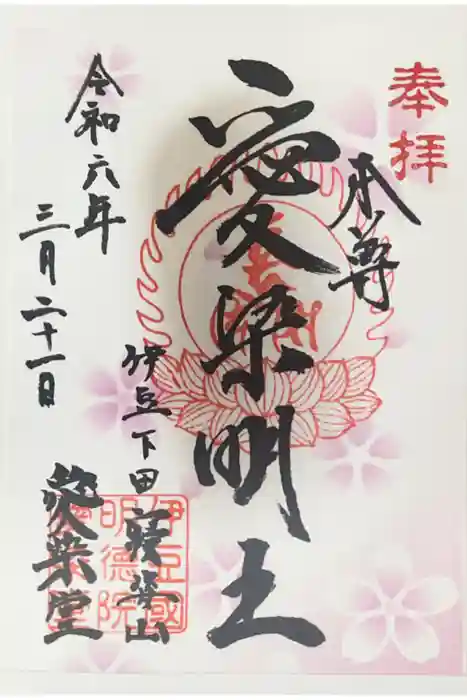 奉拝
本尊
愛染明王
伊豆下田寝姿山
愛染堂
令和六年
三月二十一日
伊豆國
明德院